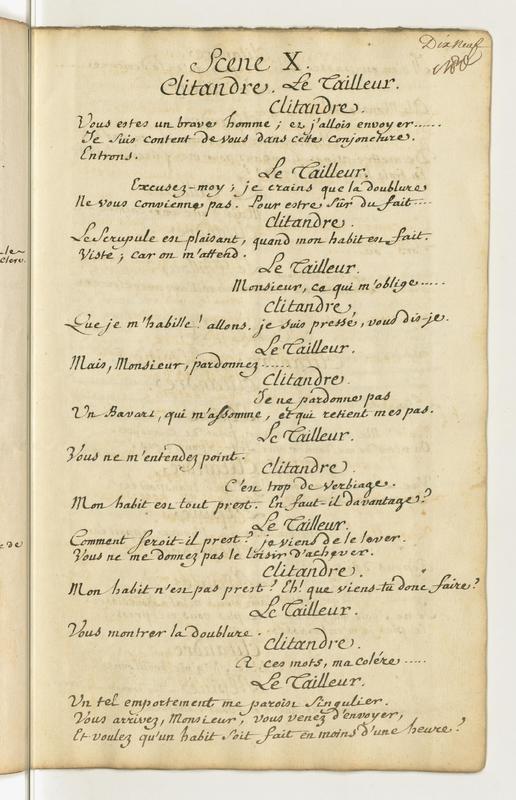 Dix Neuf
Scene X.
Clitandre. Le Tailleur.
Clitandre.
Vous estes un brave homme; et j'allois envoyer.....
Je suis content de vous dans cette conjoncture.
Entrons.
Le Tailleur.
Excusez-moy; je crains que la doublure
Ne vous convienne pas. Pour estre sûr du fait....
Clitandre.
Le Scrupule est plaisant, quand mon habit est fait.
Viste; car on m'attend.
Le Tailleur.
Monsieur, ce qui m'oblige.....
Clitandre.
Que je m'habille! allons. je suis pressé, vous dis-je.
Le Tailleur.
Mais, Monsieur, pardonnez......
Clitandre.
Je ne pardonne pas
Un Bavart, qui m'assomme, et qui retient mes pas.
Le Tailleur.
Vous ne m'entendez point.
Clitandre.
C'est trop de verbiage.
Mon habit est tout prest. En faut-il davantage?
Le Tailleur.
Comment seroit-il prest? je viens de le lever.
Vous ne me donnez pas le loisir d'achever.
Clitandre.
Mon habit n'est pas prest? Eh! que viens-tu donc faire?
Le Tailleur.
Vous montrer la doublure.
Clitandre.
A ces mots, ma colére.....
Le Tailleur.
Un tel emportement me paroist singulier.
Vous arrivez, Monsieur; vous venez d'envoyer,
Et voulez qu'un habit soit fait en moins d'une heure?